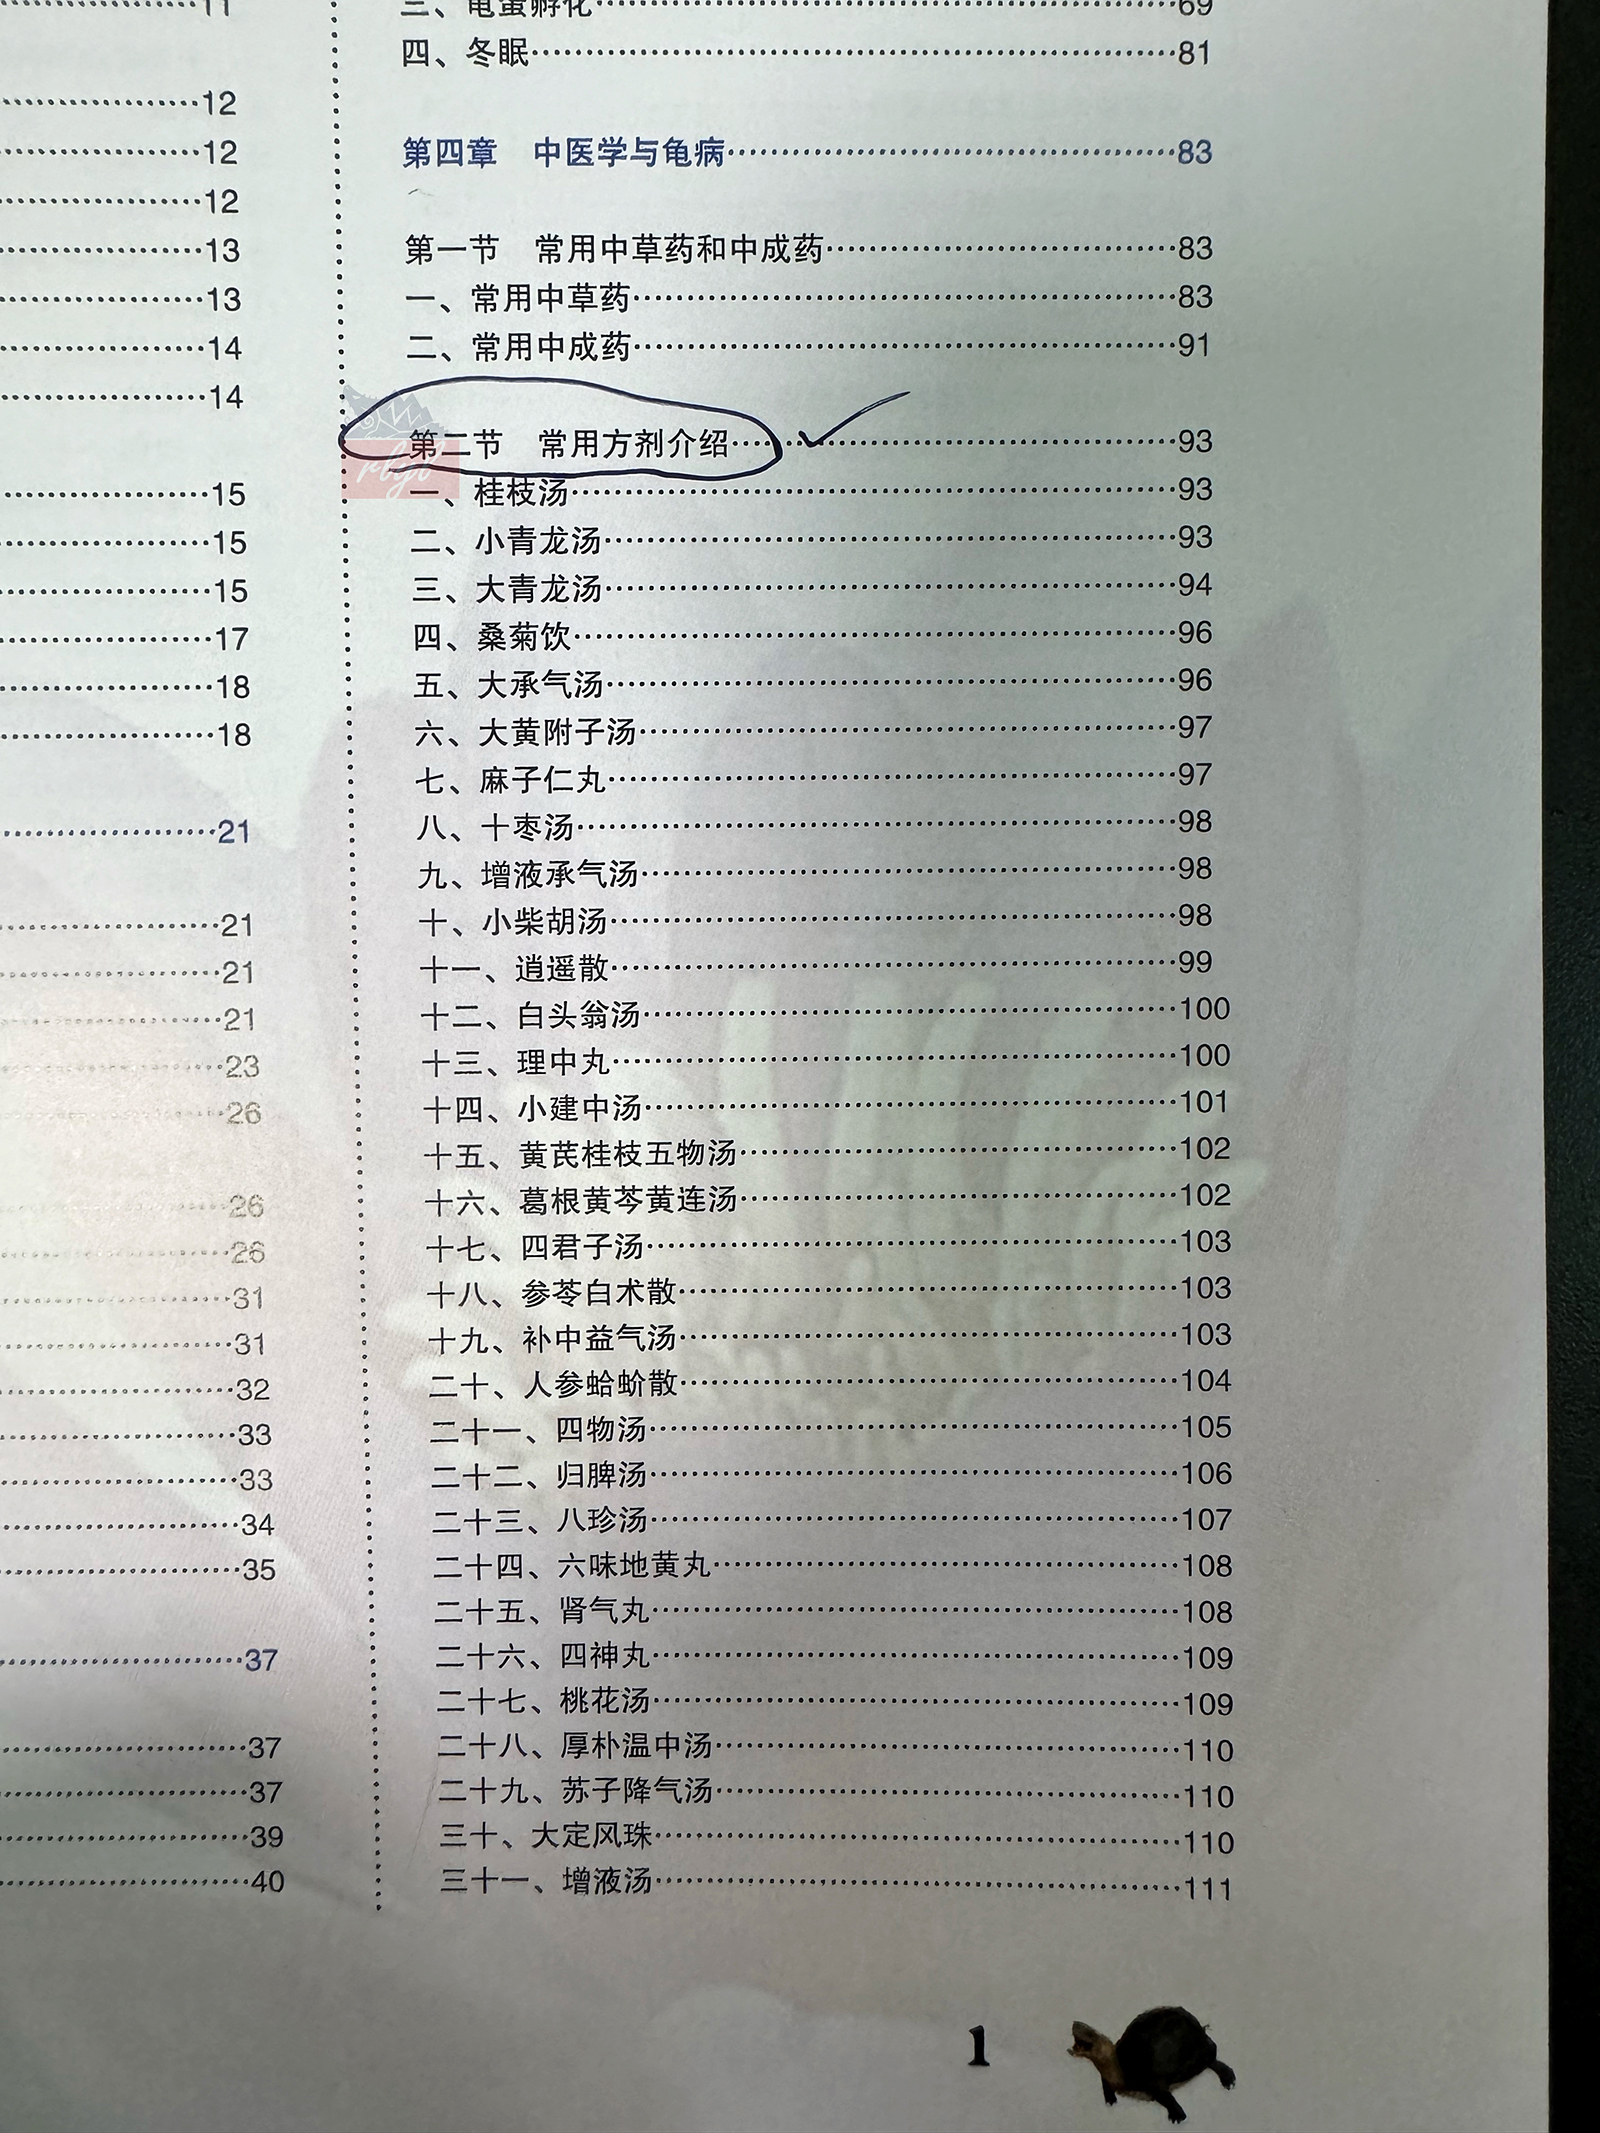 11
12
12
12
13
13
14
14
15
15
15
17
18
18
21
21
21
21
23
26
26
26
31
31
32
33
33
34
35
37
37
37
39
40
三、龟蛋孵化……69
四、冬眠……81
第四章 中医学与龟病……83
第一节 常用中草药和中成药……83
一、常用中草药……83
二、常用中成药……91
第二节 常用方剂介绍……93
rlyl
一、桂枝汤……93
二、小青龙汤……93
三、大青龙汤……94
四、桑菊饮……96
五、大承气汤……96
六、大黄附子汤……97
七、麻子仁丸……97
八、十枣汤……98
九、增液承气汤……98
十、小柴胡汤……98
十一、逍遥散……99
十二、白头翁汤……100
十三、理中丸……100
十四、小建中汤……101
十五、黄芪桂枝五物汤……102
十六、葛根黄芩黄连汤……102
十七、四君子汤……103
十八、参苓白术散……103
十九、补中益气汤……103
二十、人参蛤蚧散……104
二十一、四物汤……105
二十二、归脾汤……106
二十三、八珍汤……107
二十四、六味地黄丸……108
二十五、肾气丸……108
二十六、四神丸……109
二十七、桃花汤……109
二十八、厚朴温中汤……110
二十九、苏子降气汤……110
三十、大定风珠……110
三十一、增液汤……111
1